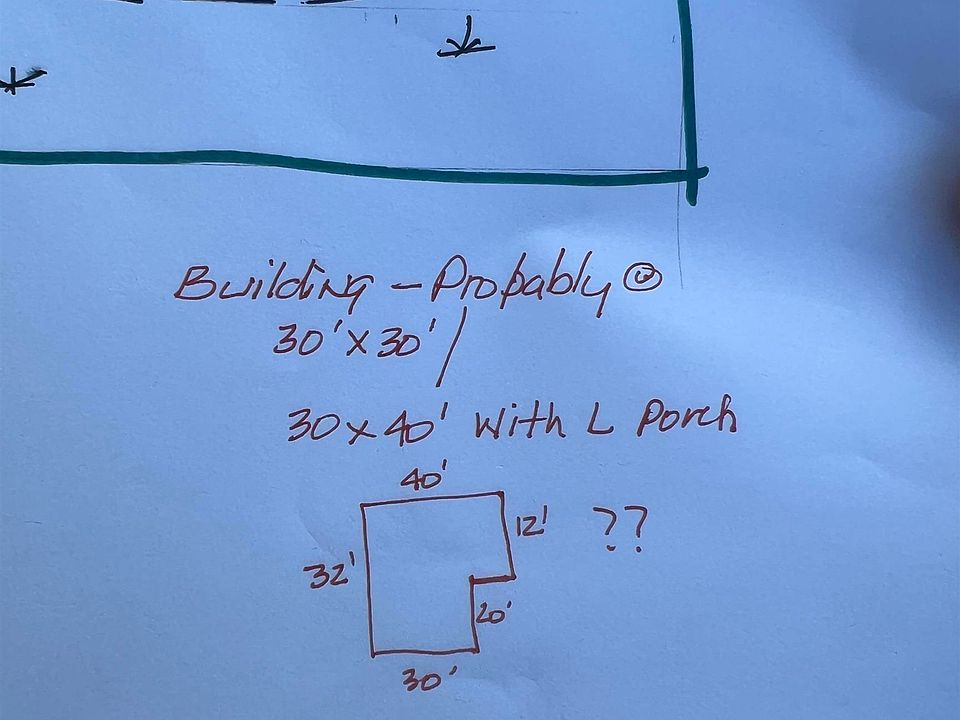 Building - Probably
30' x 30' /
30 x 40' with L Porch
40'
12' ??
32'
20'
30'